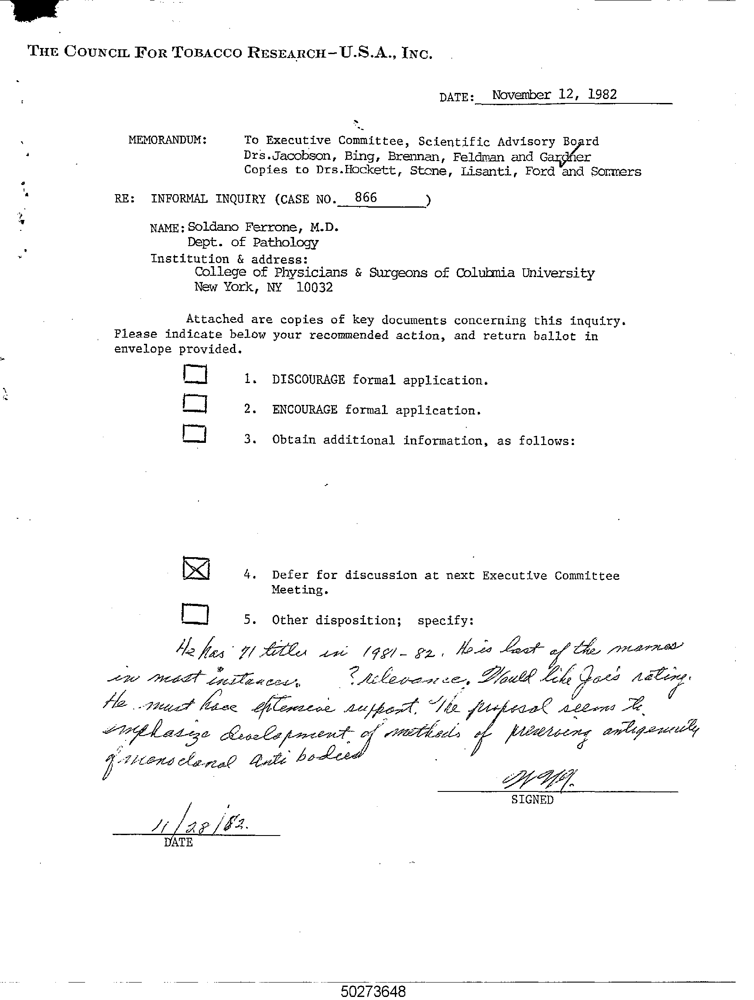 THE COUNCIL FOR TOBACCO RESEARCH-U.S.A., INC.
DATE: November 12, 1982
MEMORANDUM: To Executive Committee, Scientific Advisory Board
Drs.Jacobson, Bing, Brennan, Feldman and Gardner
Copies to Drs.Hockett, Stone, Lisanti, Ford and Sommers
RE: INFORMAL INQUIRY (CASE NO. 866 )
NAME: Soldano Ferrone, M.D.
Dept. of Pathology
Institution & address:
College of Physicians & Surgeons of Colubmia University
New York, NY 10032
Attached are copies of key documents concerning this inquiry.
Please indicate below your recommended action, and return ballot in
envelope provided.
1. DISCOURAGE formal application.
2. ENCOURAGE formal application.
3. Obtain additional information, as follows:
4. Defer for discussion at next Executive Committee
Meeting.
5. Other disposition; specify:
He has 71 titles in 1981-82. He is last of the names
in most instances. ? relevance. Would like Joe's rating.
He must have extensive support. The proposal seems to
emphasize development of methods of preserving antigenicity
of monoclonal antibodies
SIGNED
11/28/82.
DATE
50273648